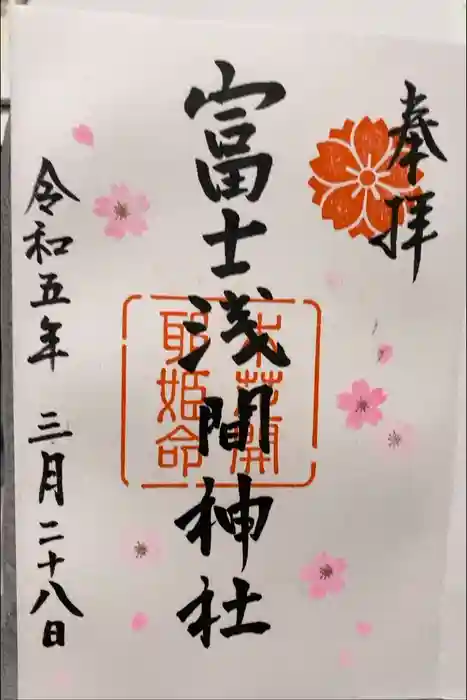 奉拝
富士浅間神社
木花開
耶姫命
令和五年 三月二十八日